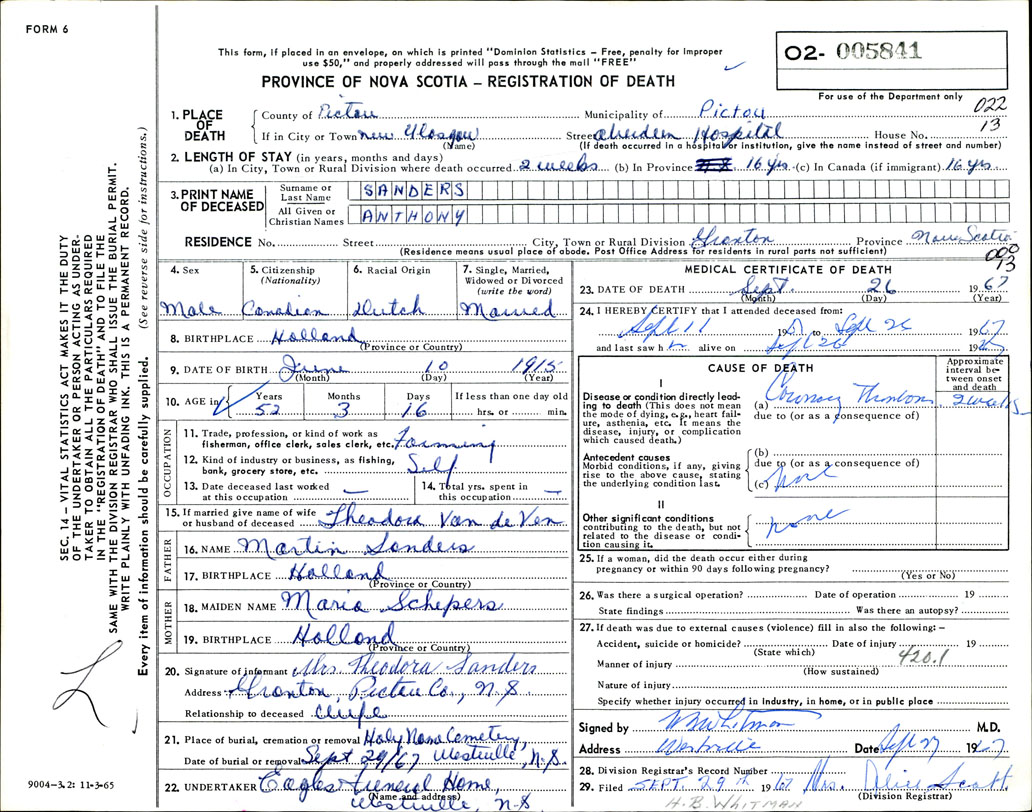 FORM 6
This form, if placed in an envelope, on which is printed "Dominion Statistics – Free, penalty for improper
use $50," and properly addressed will pass through the mail "FREE"
PROVINCE OF NOVA SCOTIA – REGISTRATION OF DEATH
02- 005841
For use of the Department only
022
13
1. PLACE OF DEATH
County of Pictou Municipality of Pictou
If in City or Town New Glasgow Street Aberdeen Hospital House No.
(Name) (If death occurred in a hospital or institution, give the name instead of street and number)
2. LENGTH OF STAY (in years, months and days)
(a) In City, Town or Rural Division where death occurred 2 weeks (b) In Province 16 yrs. (c) In Canada (if immigrant) 16 yrs.
3. PRINT NAME OF DECEASED
Surname or Last Name SANDERS
All Given or Christian Names ANTHONY
RESIDENCE No. Street City, Town or Rural Division Granton Province Nova Scotia
(Residence means usual place of abode. Post Office Address for residents in rural parts not sufficient)
000
13
4. Sex 5. Citizenship (Nationality) 6. Racial Origin 7. Single, Married, Widowed or Divorced (write the word)
Male Canadian Dutch Married
8. BIRTHPLACE Holland
(Province or Country)
9. DATE OF BIRTH June 10 1915
(Month) (Day) (Year)
10. AGE in Years Months Days If less than one day old
52 3 16 hrs. or min.
OCCUPATION
11. Trade, profession, or kind of work as
fisherman, office clerk, sales clerk, etc. Farming
12. Kind of industry or business, as fishing,
bank, grocery store, etc. Self
13. Date deceased last worked at this occupation — 14. Total yrs. spent in this occupation —
15. If married give name of wife
or husband of deceased Theodora Van de Ven
FATHER
16. NAME Martin Sanders
17. BIRTHPLACE Holland
(Province or Country)
MOTHER
18. MAIDEN NAME Maria Schepers
19. BIRTHPLACE Holland
(Province or Country)
20. Signature of informant Mrs. Theodora Sanders
Address Granton, Pictou Co., N.S
Relationship to deceased Wife
21. Place of burial, cremation or removal Holy Name Cemetery,
Date of burial or removal Sept 29/67 Westville, N.S.
22. UNDERTAKER Eagles Funeral Home,
(Name and address) Westville, N.S
MEDICAL CERTIFICATE OF DEATH
23. DATE OF DEATH Sept. 26 1967
(Month) (Day) (Year)
24. I HEREBY CERTIFY that I attended deceased from:
Sept 11 1967 to Sept 26 1967
and last saw h im alive on Sept 26 1967
CAUSE OF DEATH
Approximate interval between onset and death
I
Disease or condition directly leading to death (This does not mean the mode of dying, e.g., heart failure, asthenia, etc. It means the disease, injury, or complication which caused death.)
(a) Coronary Thrombosis 2 weeks
due to (or as a consequence of)
Antecedent causes
Morbid conditions, if any, giving rise to the above cause, stating the underlying condition last.
(b)
due to (or as a consequence of)
(c) none
II
Other significant conditions
contributing to the death, but not related to the disease or condition causing it.
none
25. If a woman, did the death occur either during
pregnancy or within 90 days following pregnancy?
(Yes or No)
26. Was there a surgical operation? Date of operation 19
State findings Was there an autopsy?
27. If death was due to external causes (violence) fill in also the following: –
Accident, suicide or homicide? Date of injury 19
(State which) 420.1
Manner of injury
(How sustained)
Nature of injury
Specify whether injury occurred in industry, in home, or in public place
Signed by WB Whitman M.D.
Address Westville Date Sept 27 1967
28. Division Registrar's Record Number
29. Filed SEPT. 29th 1967 Mrs. Alice Scott
(Division Registrar)
H.B. WHITMAN
SEC. 14 – VITAL STATISTICS ACT MAKES IT THE DUTY
OF THE UNDERTAKER OR PERSON ACTING AS UNDER-
TAKER TO OBTAIN ALL THE PARTICULARS REQUIRED
IN THE "REGISTRATION OF DEATH" AND TO FILE THE
SAME WITH THE DIVISION REGISTRAR WHO SHALL ISSUE THE BURIAL PERMIT.
WRITE PLAINLY WITH UNFADING INK. THIS IS A PERMANENT RECORD.
Every item of information should be carefully supplied. (See reverse side for instructions.)
9004-3.2: 11-3-65